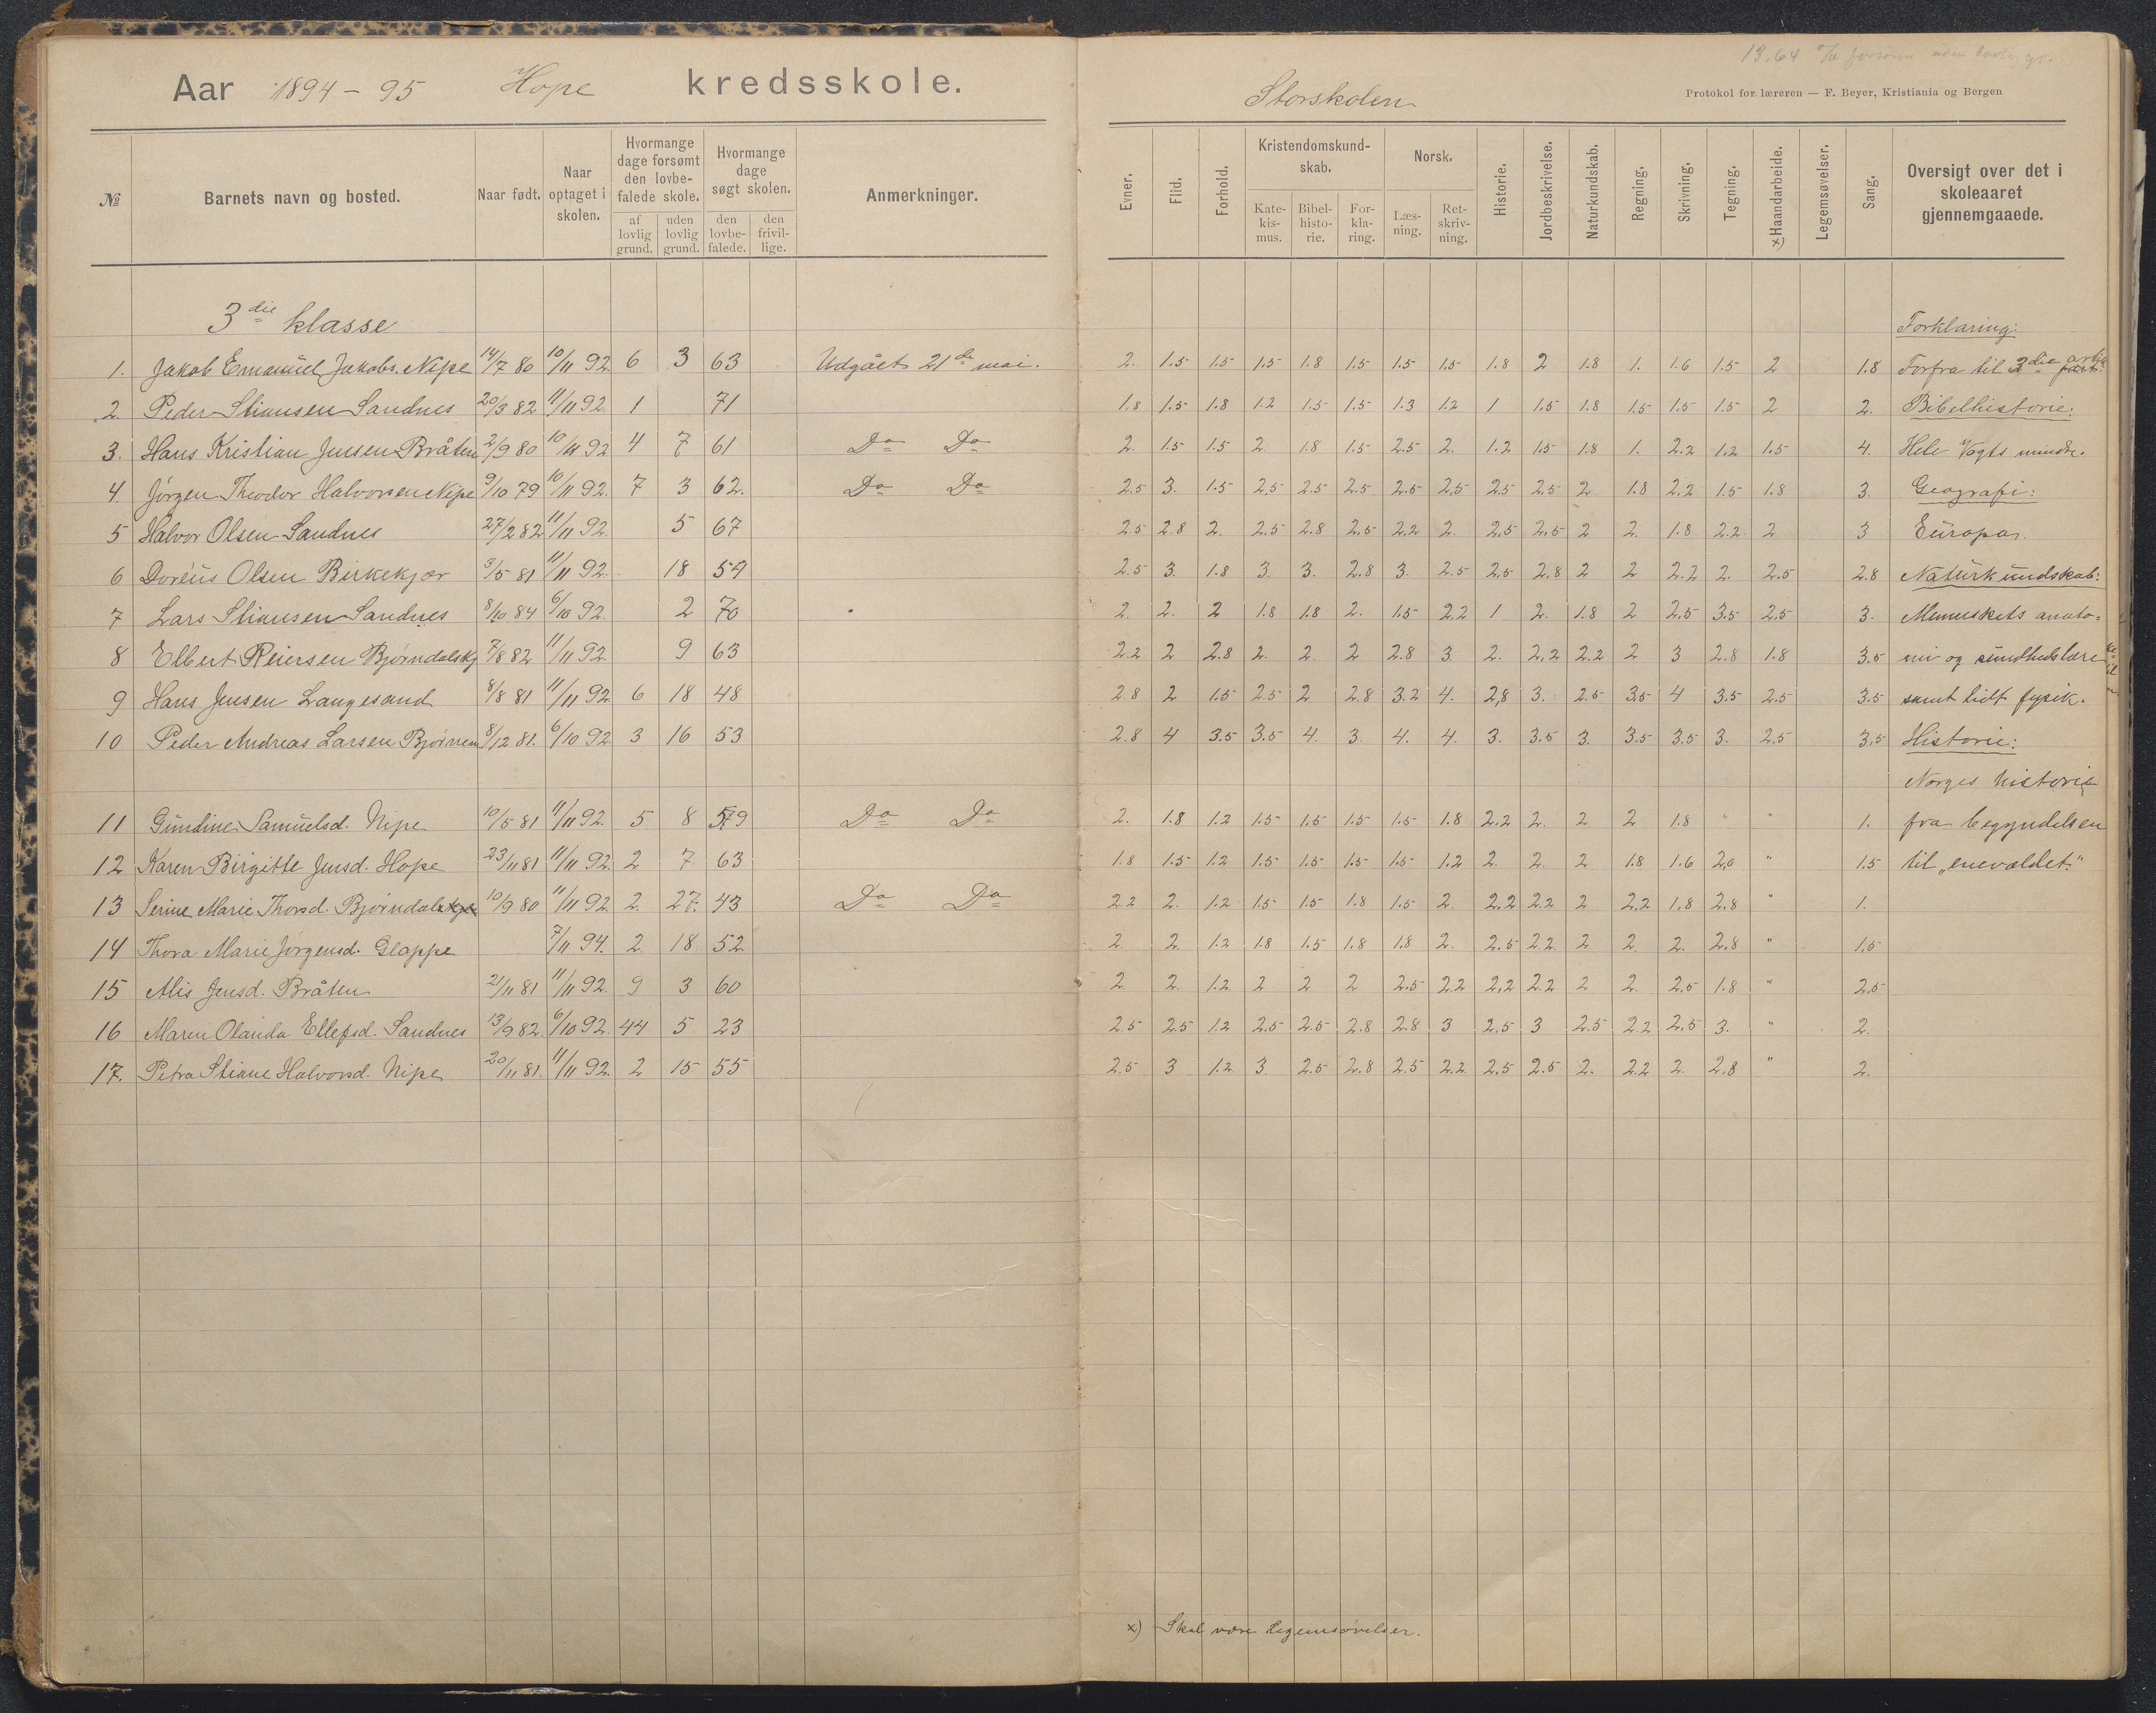 Aar 1894 - 95 Hope kredsskole.
Storskolen
13,64
Protokol for læreren — F. Beyer, Kristiania og Bergen
№ Barnets navn og bosted. Naar født. Naar optaget i skolen. Hvormange dage forsømt den lovbefalede skole. af lovlig grund. uden lovlig grund. Hvormange dage søgt skolen. den lovbefalede. den frivillige. Anmerkninger.
Evner. Flid. Forhold. Kristendomskundskab. Katekismus. Bibelhistorie. Forklaring. Norsk. Læsning. Retskrivning. Historie. Jordbeskrivelse. Naturkundskab. Regning. Skrivning. Tegning. x) Haandarbeide. Legemsøvelser. Sang. Oversigt over det i skoleaaret gjennemgaaede.
3die klasse Forklaring:
1. Jakob Emanuel Jakobs. Nipe 14/7 80 10/11 92. 6 3 63 Udgået 21de mai. 2. 1.5 1.5 1.5 1.8 1.5 1.5 1.5 1.8 2 1.8 1. 1.6 1.5 2 1.8 Forfra til 3die
2. Peder Stiansen Sandnes 20/3 82 11/11 92. 1 71 1.8 1.5 1.8 1.2 1.5 1.5 1.3 1.2 1 1.5 1.8 1.5 1.5 1.5 2 2. Bibelhistorie:
3. Hans Kristian Jensen Bråten 2/9 80 10/11 92 4 7 61 Do Do 2. 1.5 1.5 2. 1.8 1.5 2.5 2. 1.2 1.5 1.8 1. 2.2 1.2 1.5 4. Hele Vogts mindre.
4. Jörgen Theodor Halvorsen Nipe 9/10 79 10/11 92. 7 3 62. Do Do 2.5 3. 1.5 2.5 2.5 2.5 2.5 2.5 2.5 2.5 2 1.8 2.2 1.5 1.8 3. Geografi:
5 Halvor Olsen Sandnes 27/2 82 11/11 92. 5 67 2.5 2.8 2. 2.5 2.8 2.5 2.2 2. 2.5 2.5 2 2. 1.8 2.2 2 3 Europa.
6 Doréus Olsen Birkekjær 3/5 81 11/11 92. 18 59 2.5 3. 1.8 3. 3. 2.8 3. 2.5 2.5 2.8 2 2 2.2 2. 2.5 2.8 Naturkundskab:
7 Lars Stiansen Sandnes 8/10 84 6/10 92. 2 70 2. 2. 2 1.8 1.8 2. 1.5 2.2 1 2. 1.8 2 2.5 3.5 2.5 3. Menneskets anato=
8 Elbert Reiersen Bjørndalskj 7/8 82 11/11 92. 9 63 2.2 2 2.8 2. 2. 2 2.8 3. 2. 2.2 2.2 2 3 2.8 1.8 3.5 mi og sundhedslære
9 Hans Jensen Langesand 8/8 81 11/11 92 6 18 48 2.8 2 1.5 2.5 2 2.8 3.2 4. 2.8 3. 2.5 3.5 4 3.5 2.5 3.5 samt lidt fysik.
10 Peder Andreas Larsen Bjørnen 8/12 81. 6/10 92 3 16 53 2.8 4 3.5 3.5 4. 3. 4. 4. 3. 3.5 3. 3.5 3.5 3. 2.5 3.5 Historie:
Norges historie
11 Gundine Samuelsd. Nipe 10/5 81 11/11 92. 5 8 59 Do Do 2. 1.8 1.2 1.5 1.5 1.5 1.5 1.8 2.2 2. 2 2 1.8 " " 1. fra begyndelsen
12 Karen Birgitte Jensd. Hope 23/11 81 11/11 92. 2 7. 63 1.8 1.5 1.2 1.5 1.5 1.5 1.5 1.2 2. 2. 2 1.8 1.6 2,0 " 1.5 til „enevældet."
13 Serine Marie Thorsd. Bjørndal 10/9 80 11/11 92 2. 27. 43 Do Do 2.2 2. 1.2 1.5 1.5 1.8 1.5 2. 2.2 2.2 2 2.2 1.8 2.8 " 1.
14 Thora Marie Jørgensd. Glappe 7/11 94. 2. 18. 52 2. 2. 1.2 1.8 1.5 1.8 1.8 2. 2.5 2.2. 2 2. 2. 2.8 " 1.5
15 Alis Jensd. Bråten 21/11 81 11/11 92. 9 3 60 2 2. 1.2 2 2 2 2.5 2.2 2.2 2.2 2 2. 2.5 1.8 " 2.5
16 Maren Olanda Ellefsd. Sandnes 13/9 82. 6/10 92. 44 5 23 2.5 2.5 1.2 2.5 2.5 2.8 2.8 3 2.5 3 2.5 2.2 2.5 3. " 2.
17. Petra Stiane Halvorsd. Nipe 20/11 81. 11/11 92. 2 15 55 2.5 3 1.2 3. 2.5 2.8 2.5 2.2 2.5 2.5 2. 2.2 2 2.8 " 2.
x) Skal være legemsøvelser.